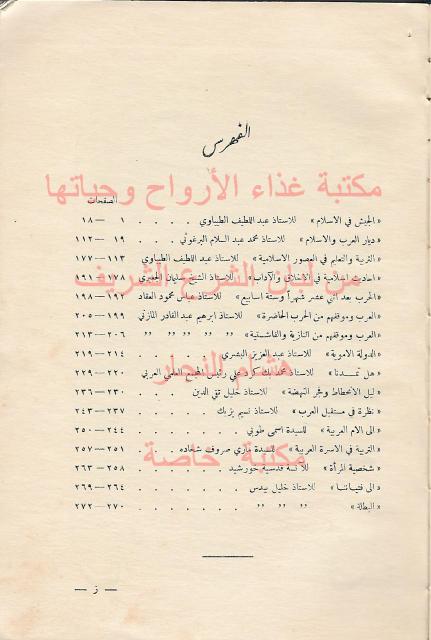 الفهرس
مكتبة غذاء الأرواح وحياتها
الصفحات
« الجيش في الاسلام » للاستاذ عبد اللطيف الطيباوي . . . . ١ — ١٨
« ديار العرب والاسلام » للاستاذ محمد عبد السلام البرغوثي . . . ١٩ — ١١٢
« التربية والتعليم في العصور الاسلامية » للاستاذ عبد اللطيف الطيباوي ١١٣ — ١٧٧
« احاديث اسلامية في الاخلاق والآداب » للاستاذ الشيخ سليمان الجعبري ١٧٨ — ١٩١
من لبن الشرع الشريف
« الحرب بعد اثني عشر شهراً وستة اسابيع » للاستاذ عباس محمود العقاد ١٩٢ — ١٩٨
« العرب وموقفهم من الحرب الحاضرة » للاستاذ ابرهيم عبد القادر المازني ١٩٩ — ٢٠٥
« العرب وموقفهم من النازية والفاشستية » " " " " " ٢٠٦ — ٢١٣
« الدولة الاموية » للاستاذ عبد العزيز البشري . . . . ٢١٤ — ٢١٩
هشام النجار
« هل تمدنا » للاستاذ محمد بك كرد علي رئيس المجمع العلمي العربي ٢٢٠ — ٢٢٩
« ليل الانحطاط وفجر النهضة » للاستاذ خليل تقي الدين . . . ٢٣٠ — ٢٣٦
« نظرة في مستقبل العرب » للاستاذ نسيم يزبك . . . . ٢٣٧ — ٢٤٣
« الى الام العربية » للسيدة اسمى طوبي . . . . . ٢٤٤ — ٢٥٠
« التربية في الاسرة العربية » للسيدة ماري صروف شحاده . . . ٢٥١ — ٢٥٧
مكتبة خاصة
« شخصية المرأة » للآنسة قدسية خورشيد . . . . . ٢٥٨ — ٢٦٣
« الى فتياتنا » للاستاذ خليل بيدس . . . . . . ٢٦٤ — ٢٦٩
« البطالة » " " " . . . . . . ٢٧٠ — ٢٧٢
— ز —